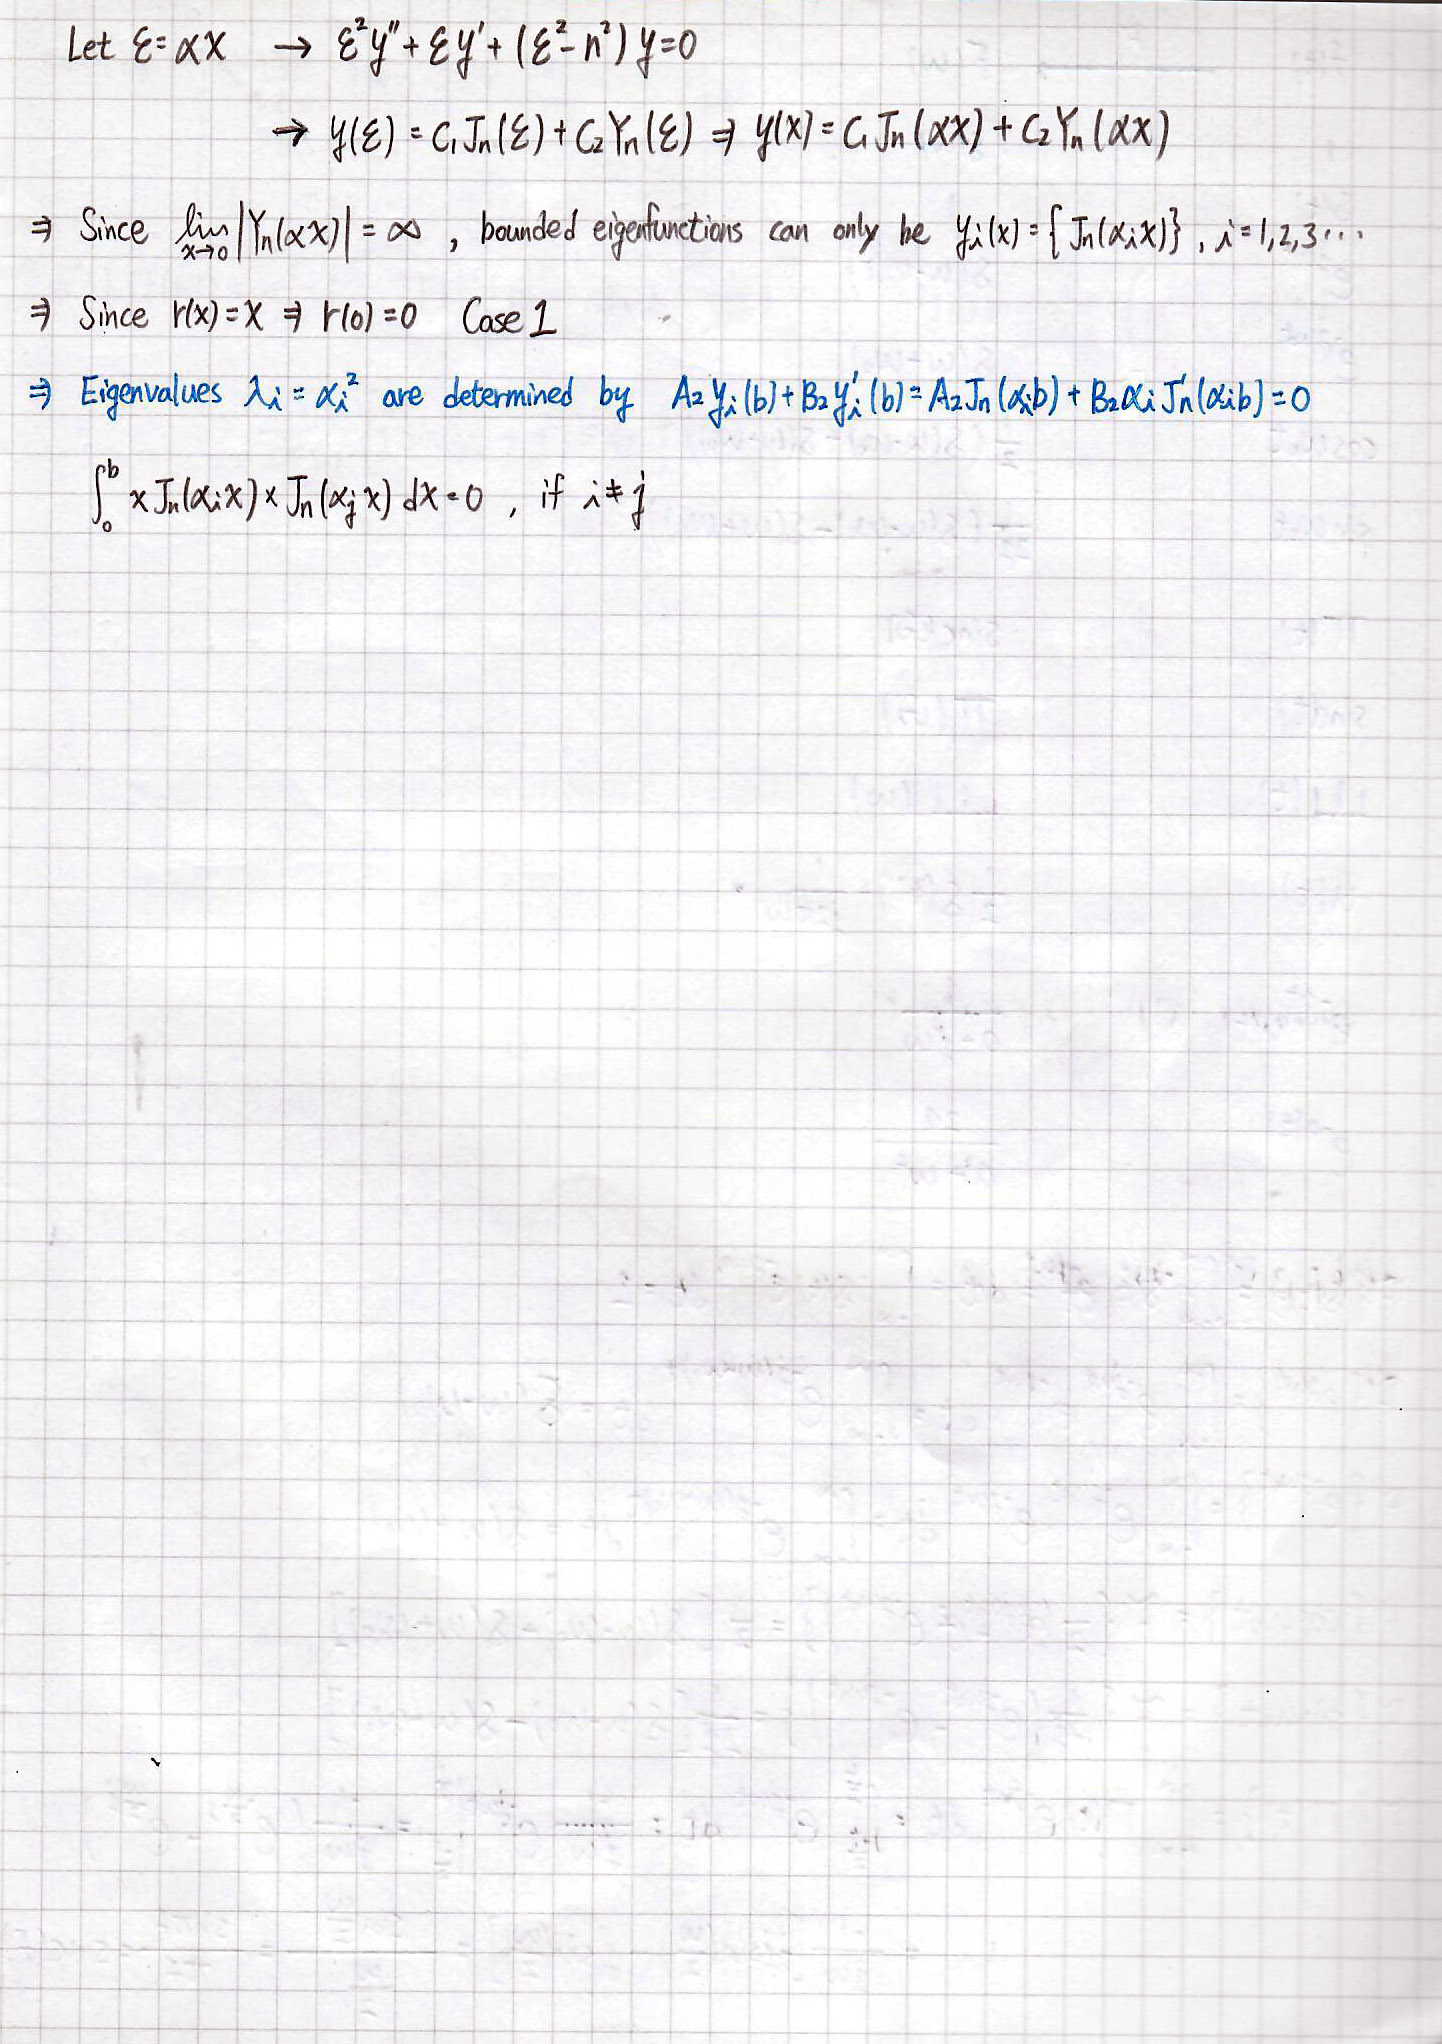 Let ε=αx → ε²y''+εy'+(ε²-n²)y=0
→ y(ε)=C₁Jn(ε)+C₂Yn(ε) ⇒ y(x)=C₁Jn(αx)+C₂Yn(αx)
⇒ Since lim x→0 |Yn(αx)|=∞, bounded eigenfunctions can only be yᵢ(x)={Jn(αᵢx)}, i=1,2,3...
⇒ Since r(x)=x ⇒ r(0)=0 Case 1
⇒ Eigenvalues λᵢ=αᵢ² are determined by A₂yᵢ(b)+B₂yᵢ'(b)=A₂Jn(αᵢb)+B₂αᵢJn'(αᵢb)=0
∫₀ᵇ xJn(αᵢx)×Jn(αⱼx)dx=0, if i≠j